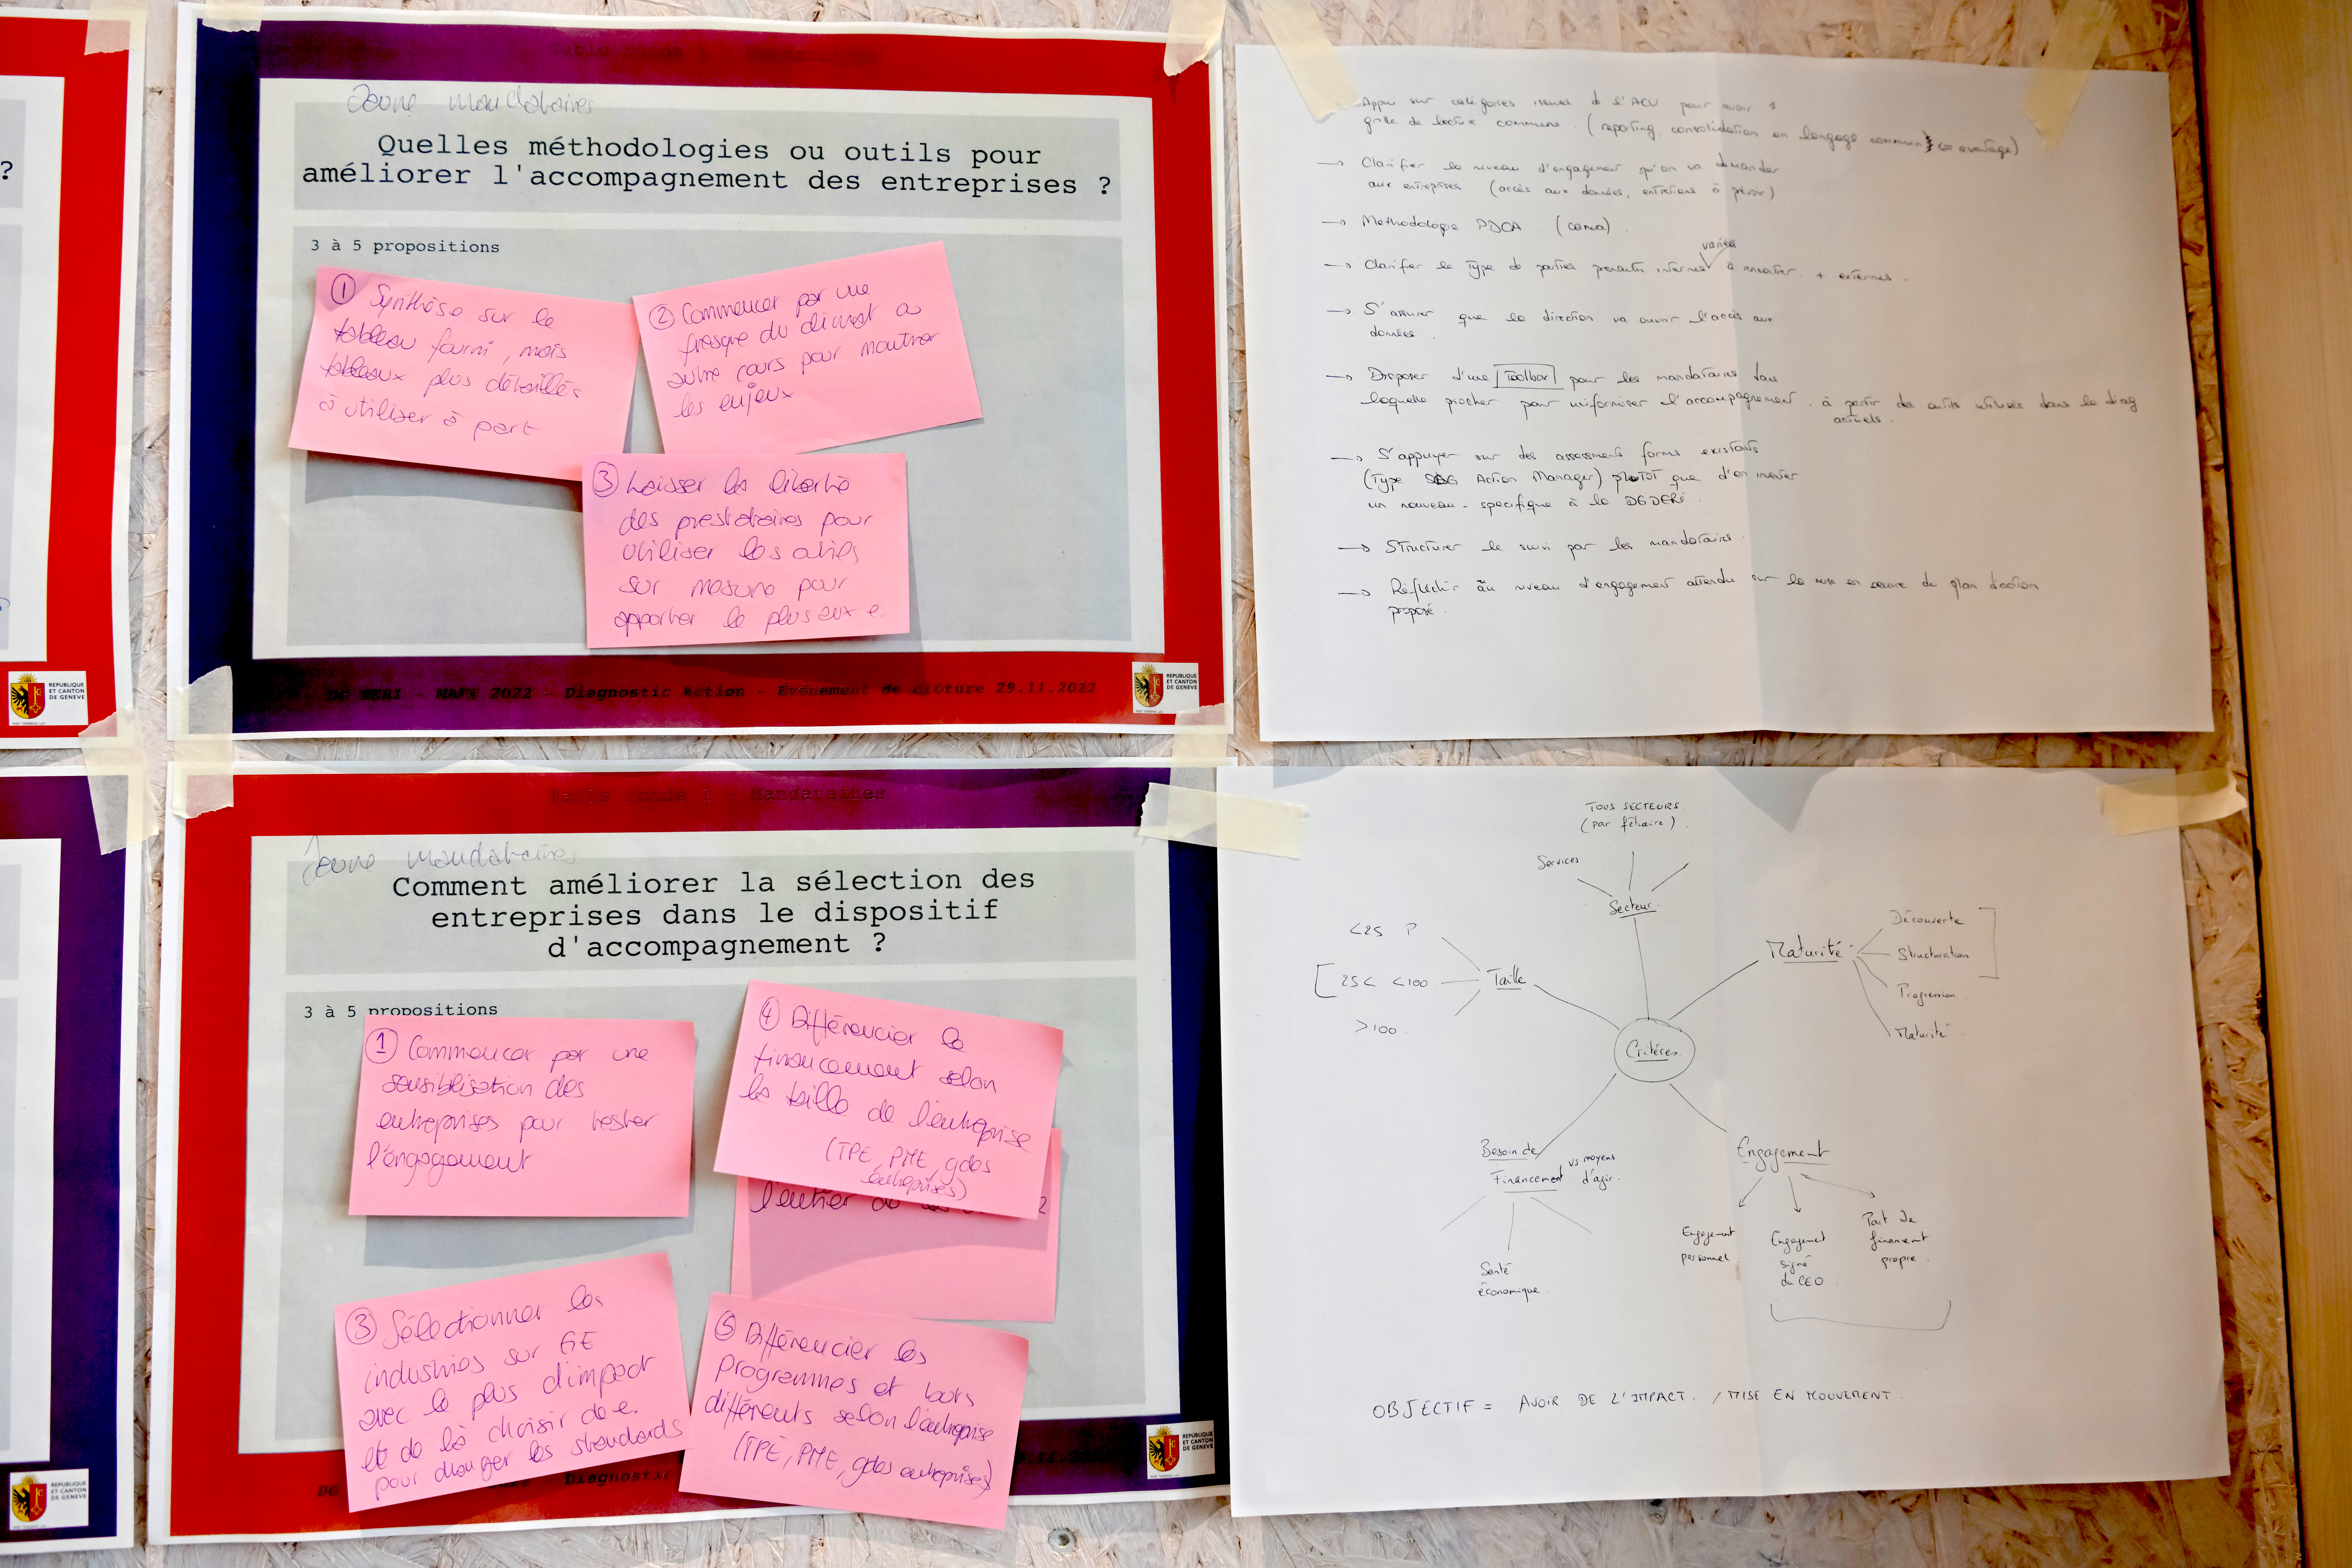 ?
REPUBLIQUE
ET CANTON
DE GENEVE
Jaune mandataires
Quelles méthodologies ou outils pour
améliorer l'accompagnement des entreprises ?
3 à 5 propositions
① Synthèse sur le
tableau fourni, mais
tableaux plus détaillés
à utiliser à part
② Commencer par une
fresque du climat ou
autre cours pour montrer
les enjeux
③ Laisser la liberté
des prestataires pour
utiliser les outils
sur mesure pour
apporter le plus aux e.
DG DERI - MAPE 2022 - Diagnostic Action - Événement de clôture 29.11.2022
REPUBLIQUE
ET CANTON
DE GENEVE
Appui sur catégories issues de l'ACV pour avoir 1
grille de lecture commune. (reporting, consolidation en langage commun) (= avantage)
→ Clarifier le niveau d'engagement qu'on va demander
aux entreprises (accès aux données, entretiens à prévoir)
→ Méthodologie PDCA (canva)
variés
→ Clarifier le type de parties prenantes internes à rencontrer + externes.
→ S'assurer que la direction va ouvrir l'accès aux
données.
→ Disposer d'une Toolbox pour les mandataires dans
laquelle piocher pour uniformiser l'accompagnement. à partir des outils utilisés dans le diag
actuels.
→ S'appuyer sur des assessment forms existants
(Type SDG Action Manager) plutôt que d'en inventer
un nouveau - specifique à la DGDERI.
→ Structurer le suivi par les mandataires.
→ Réfléchir au niveau d'engagement attendu sur la mise en oeuvre du plan d'action
proposé.
Table ronde 1 - Mandataires
Jaune mandataires
Comment améliorer la sélection des
entreprises dans le dispositif
d'accompagnement ?
3 à 5 propositions
① Commencer par une
sensibilisation des
entreprises pour tester
l'engagement
④ Différencier le
financement selon
la taille de l'entreprise
(TPE, PME, gdes
entreprises)
l'entier
③ Sélectionner les
industries sur GE
avec le plus d'impact
et de là choisir de e.
pour changer les standards
⑤ Différencier les
programmes et leurs
différents selon l'entreprise
(TPE, PME, gdes entreprises)
DG
Diagnostic
REPUBLIQUE
ET CANTON
DE GENEVE
REPUBLIQUE
ET CANTON
DE GENEVE
TOUS SECTEURS
(par filiaire)
Services.
Secteur.
<25 P
[25< <100
>100.
Taille
Maturité
Découverte
Structuration
Progression
Maturité
Critères
Besoin de
Financement vs moyens
d'agir.
Santé
économique.
Engagement
Engagement
personnel
Engagement
signé
du CEO
Part de
financement
propre.
OBJECTIF = AVOIR DE L'IMPACT. / MISE EN MOUVEMENT.